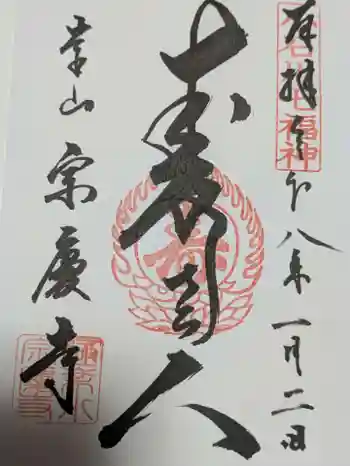 奉拝
小石川七福神
令和八年一月二日
寿老人
寿
山 宗慶寺